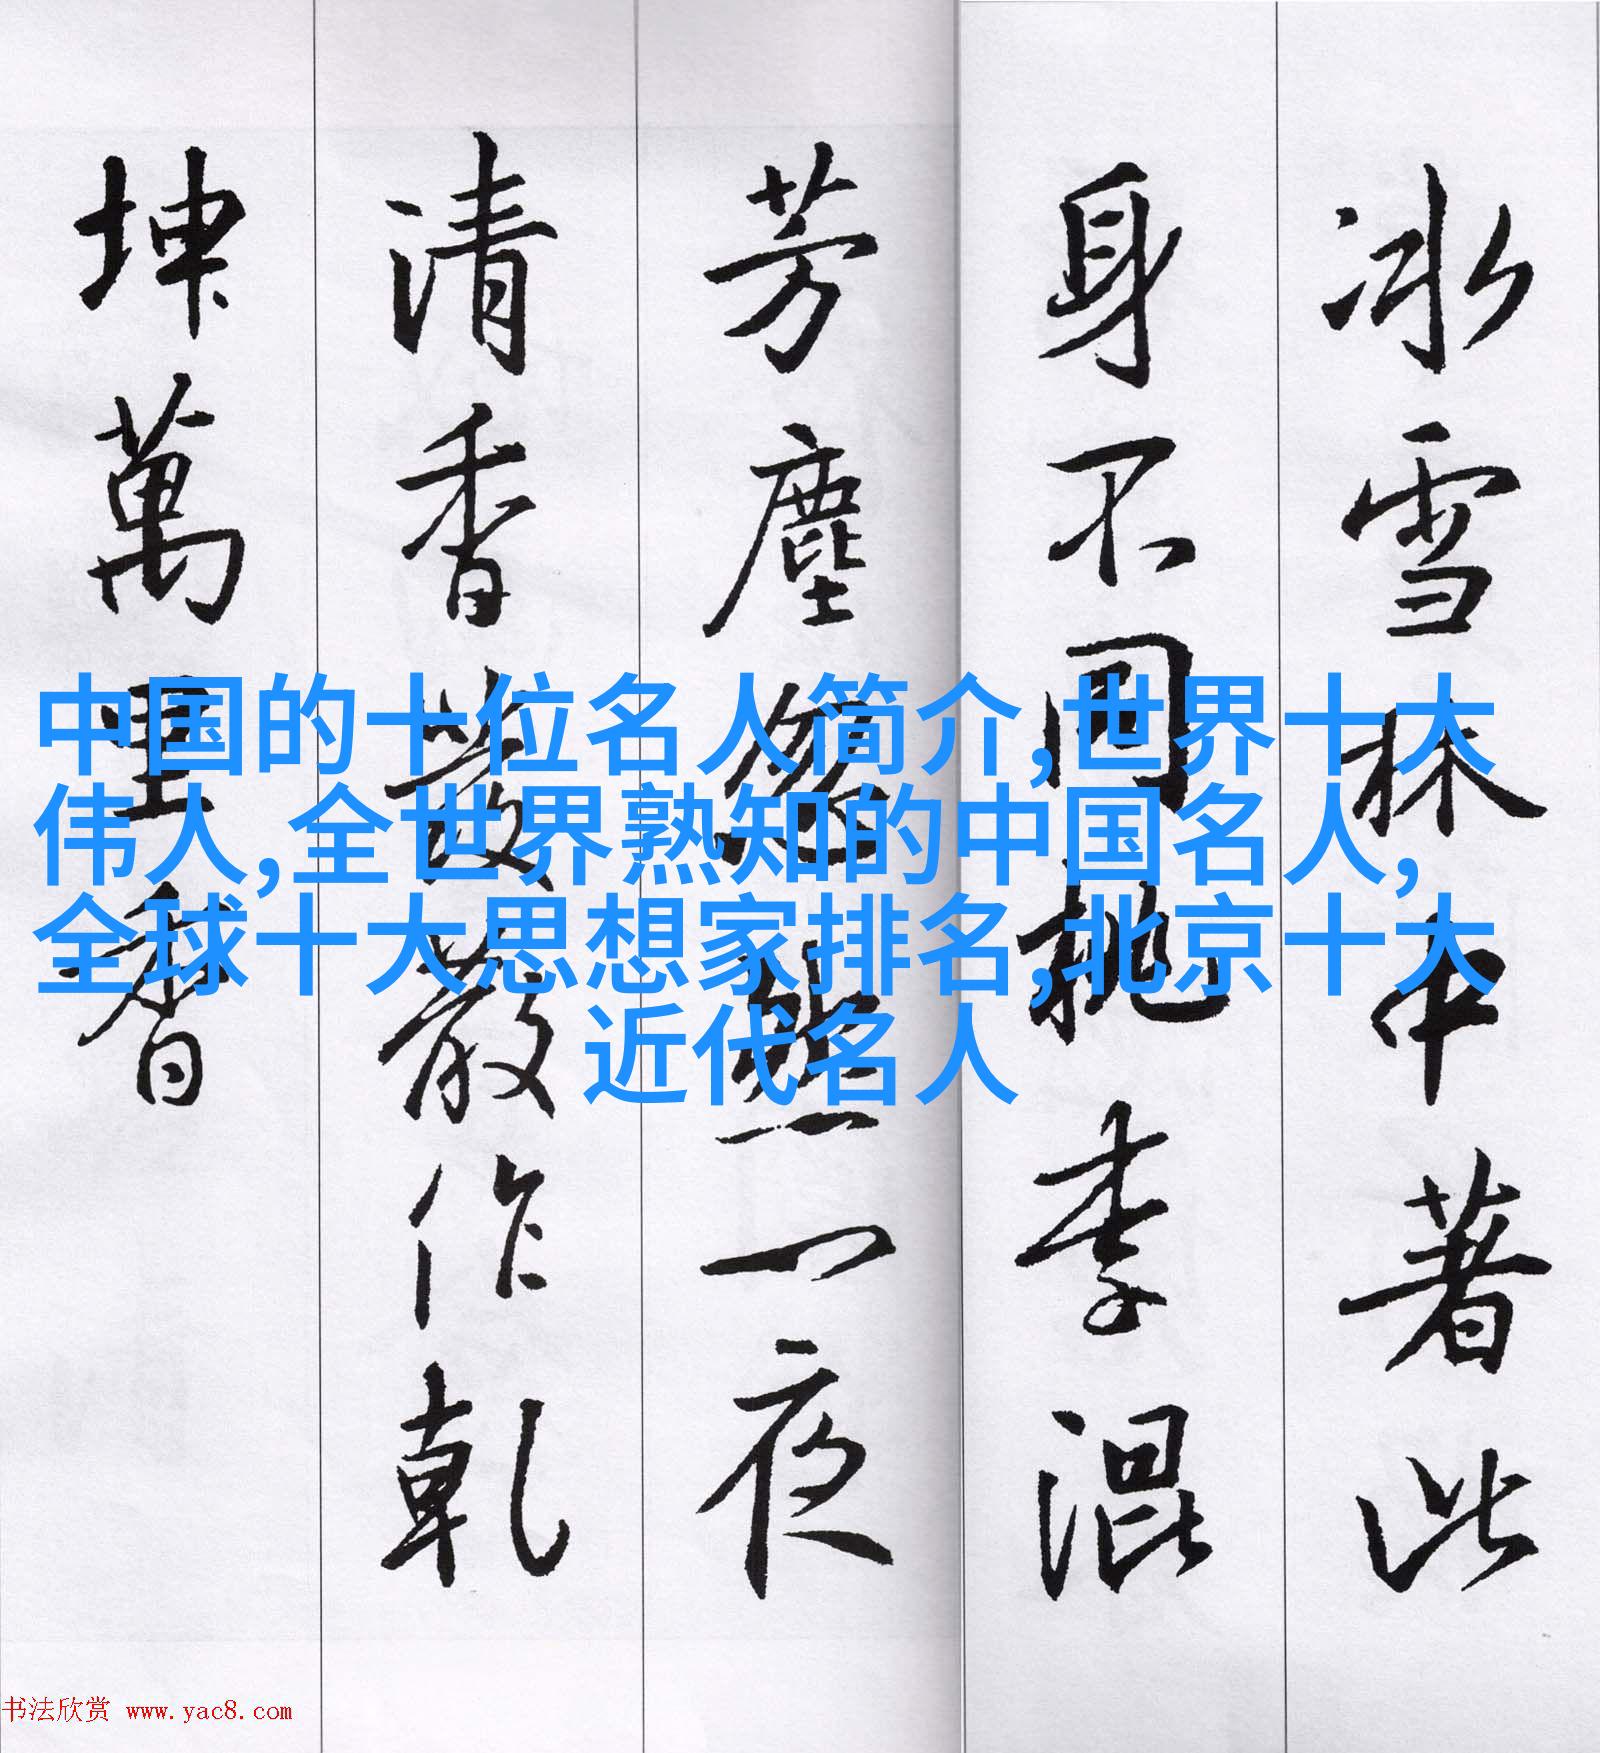 冰雪林中著此
身不同桃李混
芳塵忽然一夜
清香發散作乾
坤萬里香
中国的十位名人简介,世界十大
伟人,全世界熟知的中国名人,
全球十大思想家排名,北京十大
近代名人
书法欣赏 www.yac8.com